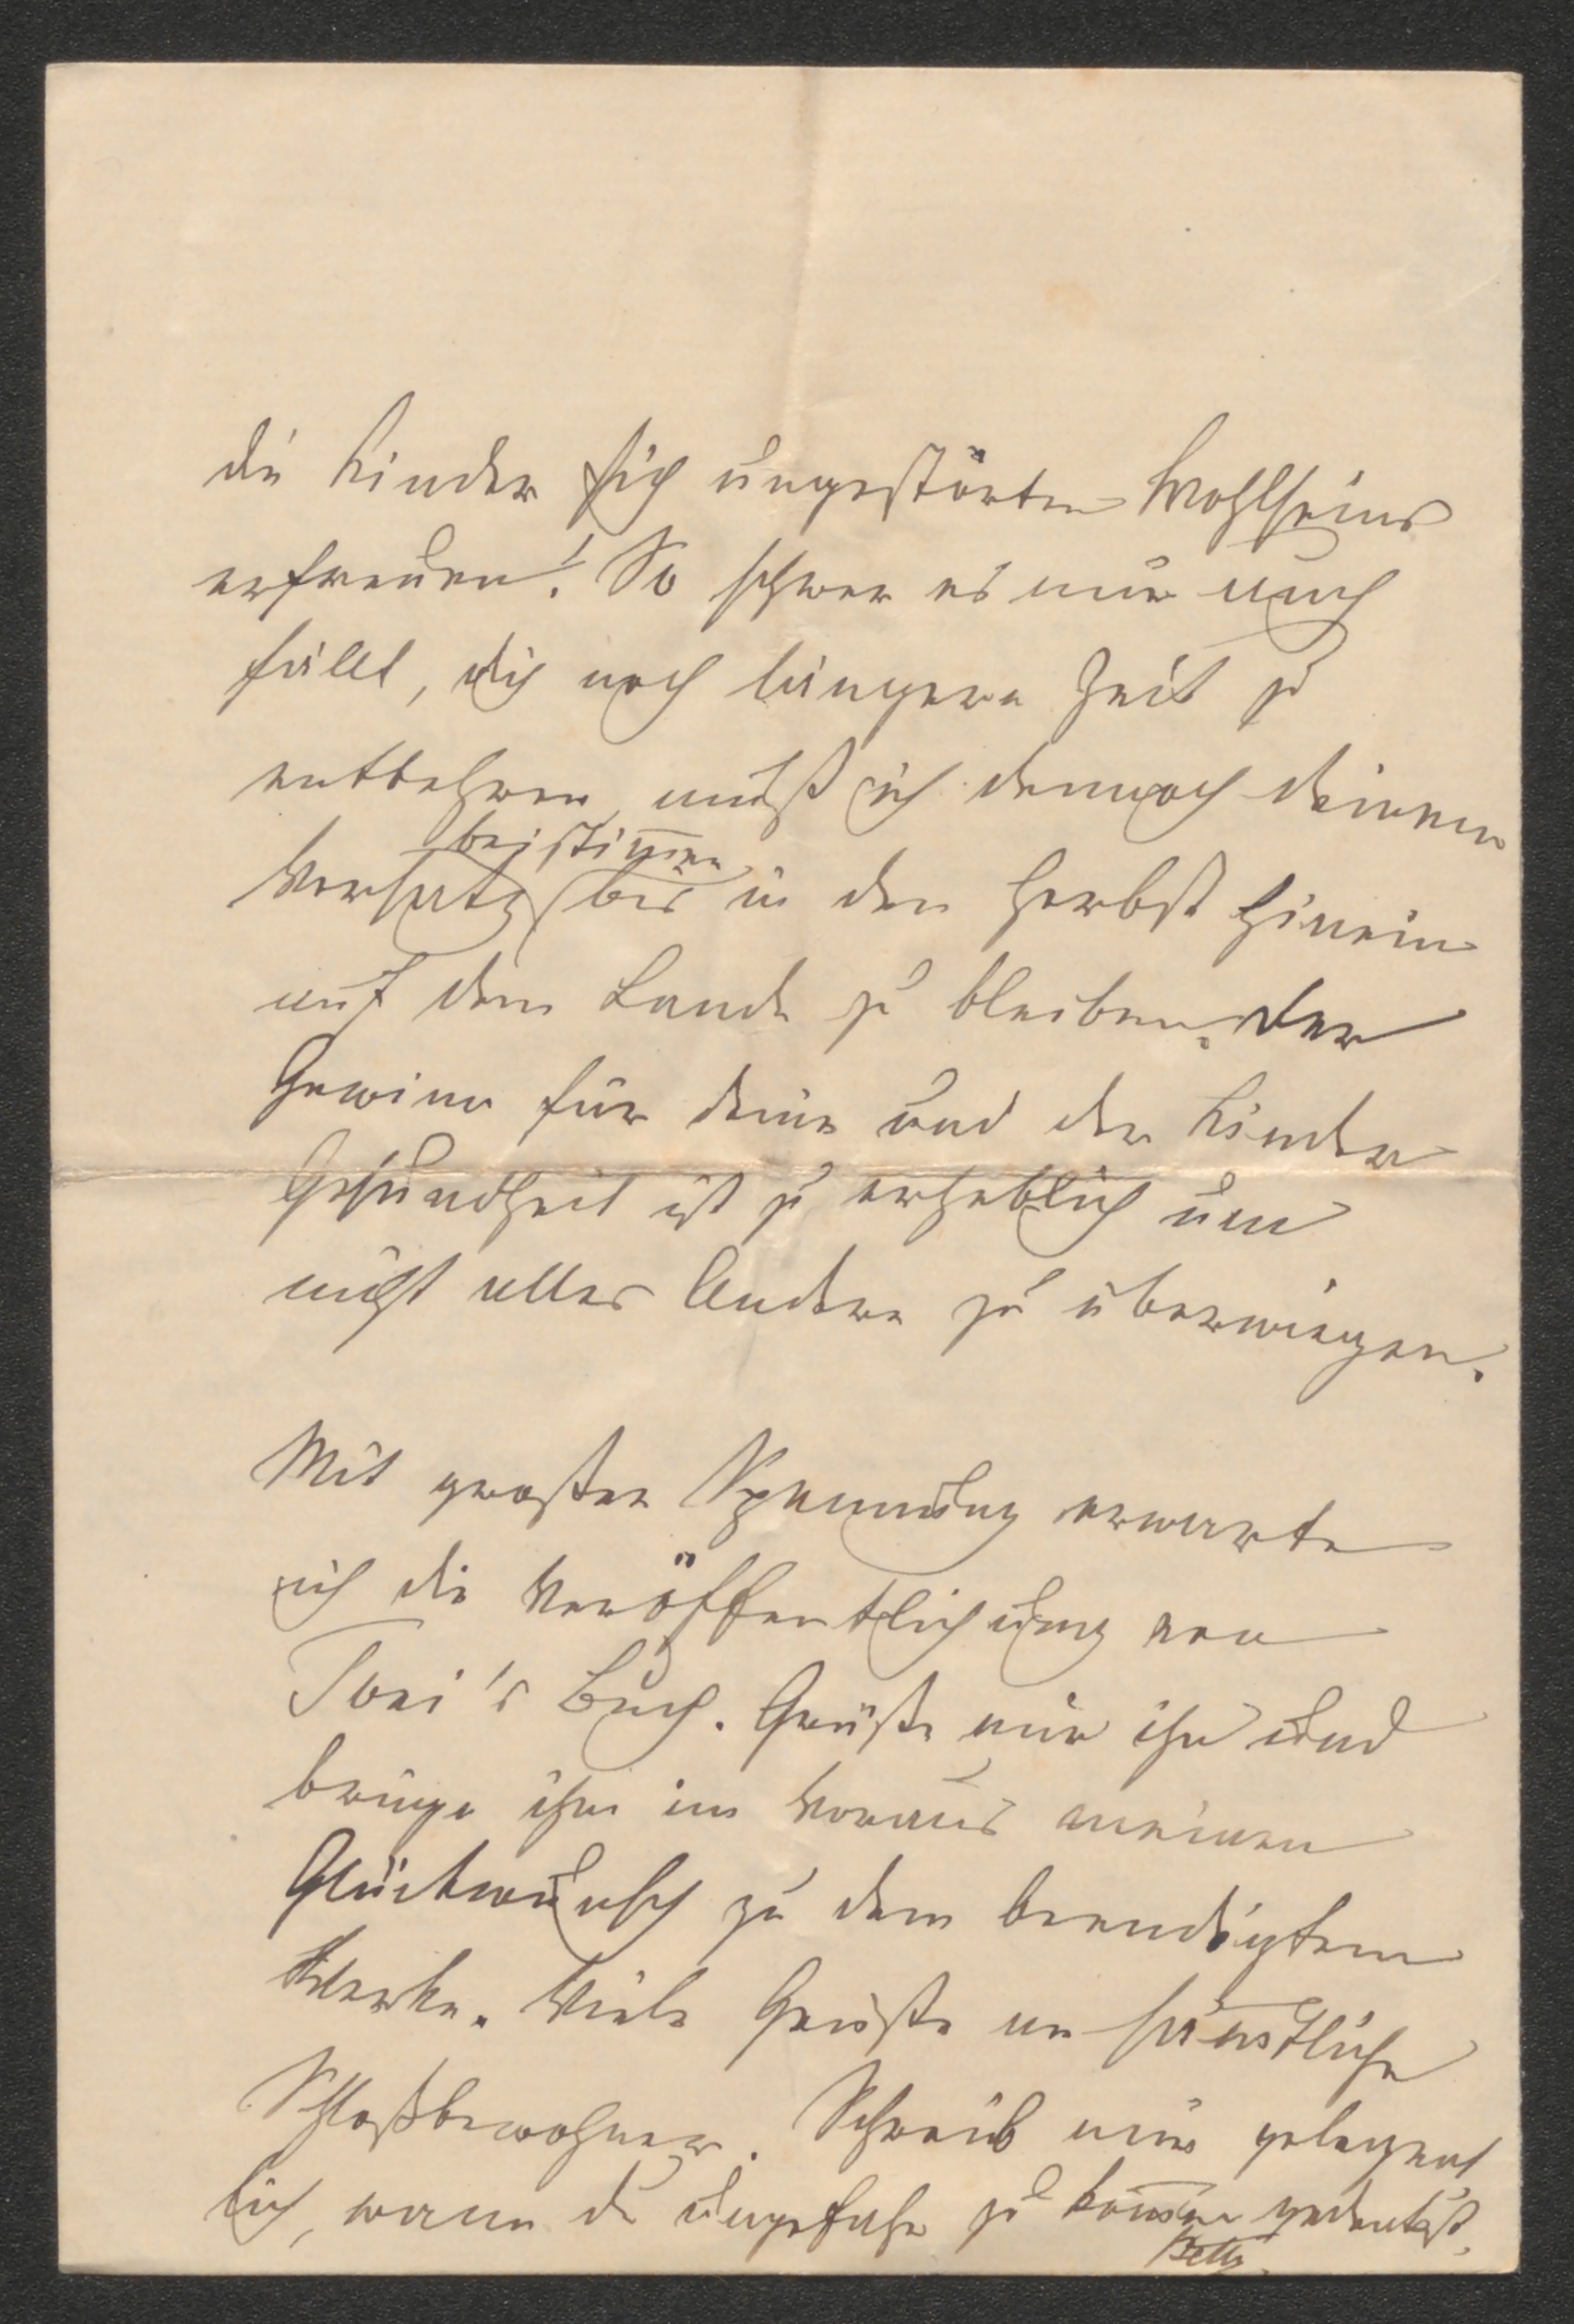 die Kinder sich ungestörten Wohlseins
erfreuen! So schwer es mir auch
fällt, dich noch längere Zeit zu
entbehren, muß ich dennoch deinem
beistimen
Vorsatz bis in den Herbst hinein
auf dem Lande zu bleiben. Der
Gewinn für deine und der Kinder
Gesundheit ist zu erheblich um
nicht alles Andere zu überwiegen.
Mit großer Spannung erwarte
ich die Veröffentlichung von
Toni's Buch. Grüße mir ihn und
bringe ihm im Voraus meinen
Glückwunsch zu dem beendigten
Werke. Viele Grüße an sämtliche
Schloßbewohner. Schreib mir gelegent
lich, wann du ungefähr zu komen gedenkst.
Betty.